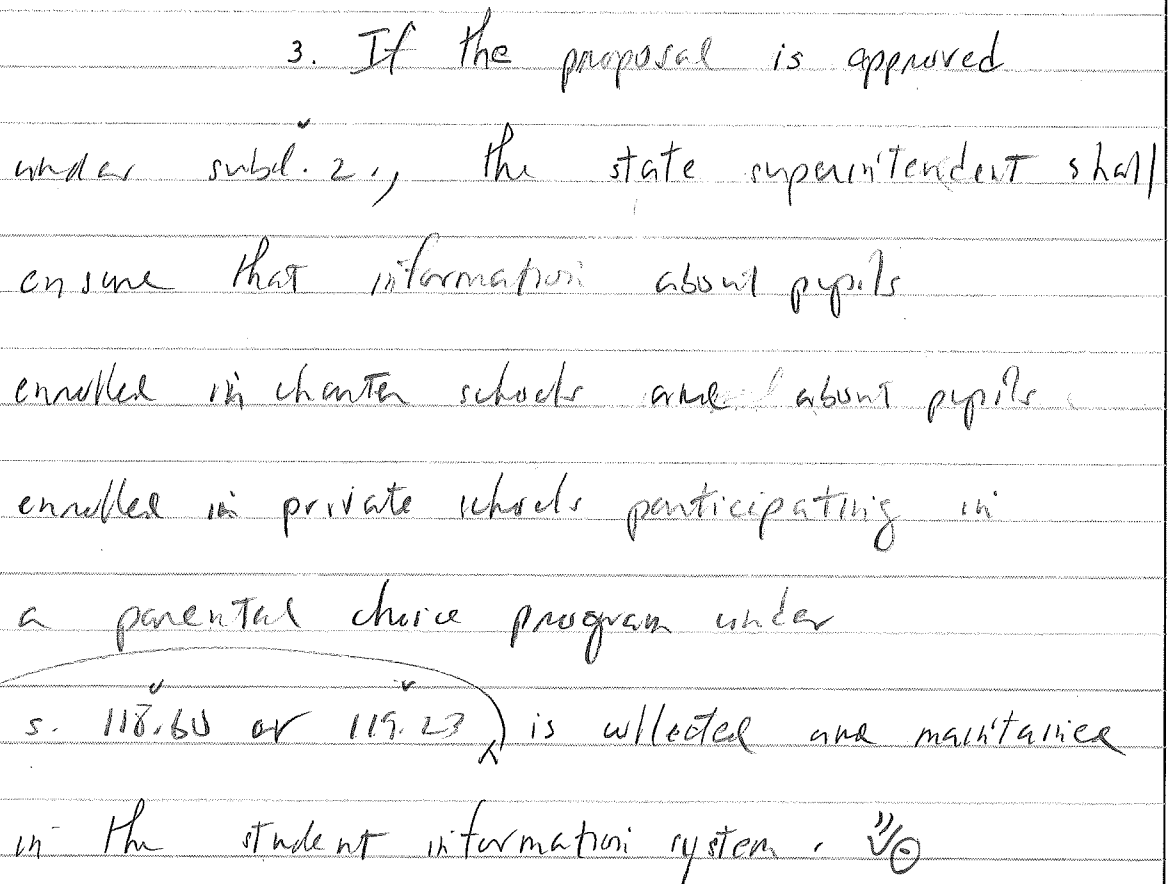 3. If the proposal is approved
under subd. 2., the state superintendent shall
ensure that information about pupils
enrolled in charter schools and about pupils
enrolled in private schools participating in
a parental choice program under
s. 118.60 or 119.23 is collected and maintained
in the student information system.